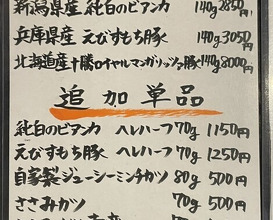 新潟県産 純白のビアンカ 140g 2850円
兵庫県産 えびすもち豚 140g 3050円
北海道産十勝ロイヤルマンガリッツァ豚 140g 8000円
追加単品
純白のビアンカ ヘレハーフ 70g 1150円
えびすもち豚 ヘレハーフ 70g 1250円
自家製ジューシーミンチカツ 80g 500円
ささみカツ 70g 500円